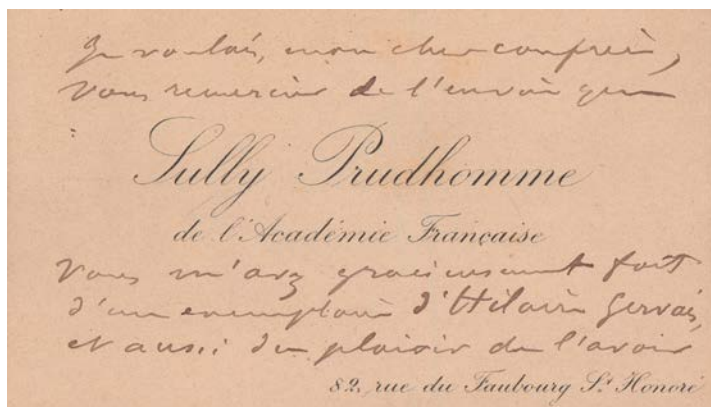 Je voulais, mon cher confrère,
vous remercier de l'envoi que
Sully Prudhomme
de l'Académie Française
vous m'avez gracieusement fait
d'un exemplaire d'Hilaire Gervais,
et aussi du plaisir de l'avoir
82, rue du Faubourg St Honoré